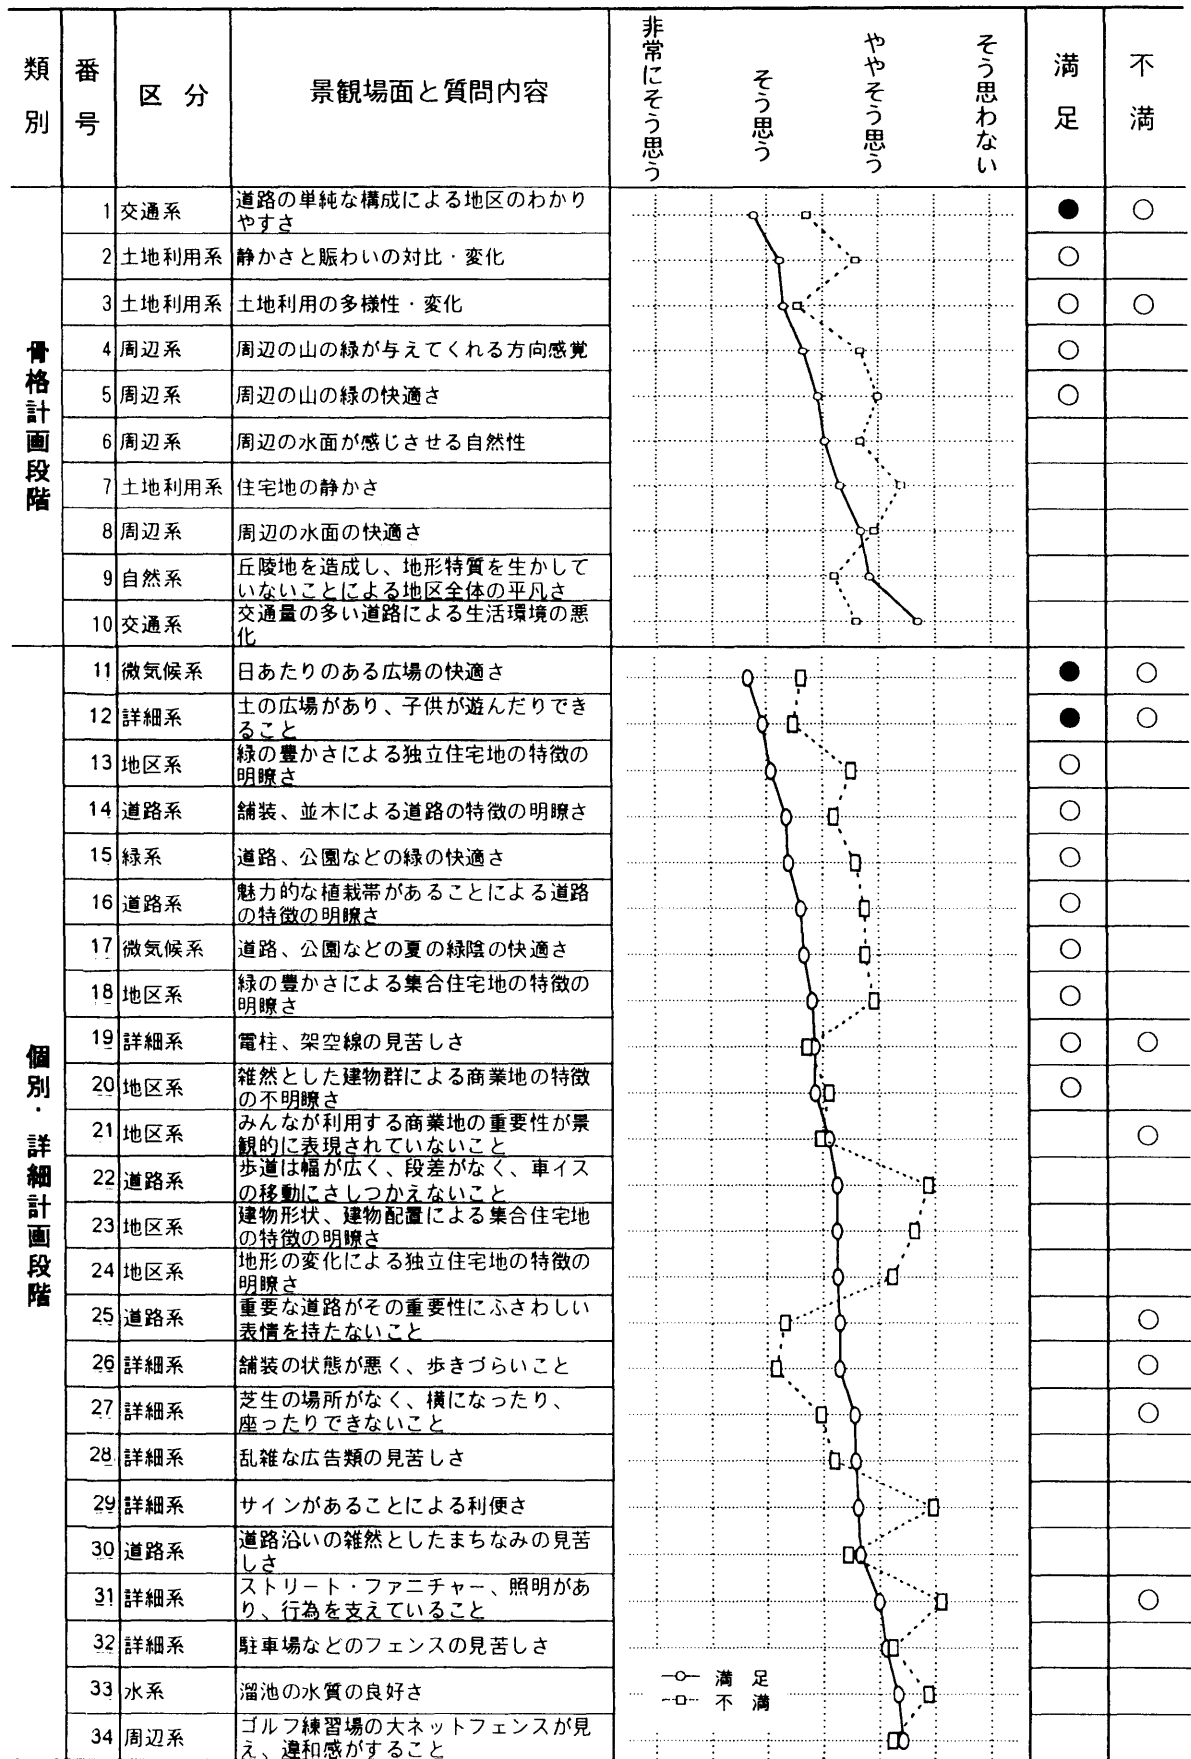 類別
番号
区分
景観場面と質問内容
非常にそう思う
そう思う
ややそう思う
そう思わない
満足
不満
骨格計画段階
1 交通系 道路の単純な構成による地区のわかり
やすさ ● ○
2 土地利用系 静かさと賑わいの対比・変化 ○
3 土地利用系 土地利用の多様性・変化 ○ ○
4 周辺系 周辺の山の緑が与えてくれる方向感覚 ○
5 周辺系 周辺の山の緑の快適さ ○
6 周辺系 周辺の水面が感じさせる自然性
7 土地利用系 住宅地の静かさ
8 周辺系 周辺の水面の快適さ
9 自然系 丘陵地を造成し、地形特質を生かして
いないことによる地区全体の平凡さ
10 交通系 交通量の多い道路による生活環境の悪
化
個別・詳細計画段階
11 微気候系 日あたりのある広場の快適さ ● ○
12 詳細系 土の広場があり、子供が遊んだりでき
ること ● ○
13 地区系 緑の豊かさによる独立住宅地の特徴の
明瞭さ ○
14 道路系 舗装、並木による道路の特徴の明瞭さ ○
15 緑系 道路、公園などの緑の快適さ ○
16 道路系 魅力的な植栽帯があることによる道路
の特徴の明瞭さ ○
17 微気候系 道路、公園などの夏の緑陰の快適さ ○
18 地区系 緑の豊かさによる集合住宅地の特徴の
明瞭さ ○
19 詳細系 電柱、架空線の見苦しさ ○ ○
20 地区系 雑然とした建物群による商業地の特徴
の不明瞭さ ○
21 地区系 みんなが利用する商業地の重要性が景
観的に表現されていないこと ○
22 道路系 歩道は幅が広く、段差がなく、車イス
の移動にさしつかえないこと
23 地区系 建物形状、建物配置による集合住宅地
の特徴の明瞭さ
24 地区系 地形の変化による独立住宅地の特徴の
明瞭さ
25 道路系 重要な道路がその重要性にふさわしい
表情を持たないこと ○
26 詳細系 舗装の状態が悪く、歩きづらいこと ○
27 詳細系 芝生の場所がなく、横になったり、
座ったりできないこと ○
28 詳細系 乱雑な広告類の見苦しさ
29 詳細系 サインがあることによる利便さ
30 道路系 道路沿いの雑然としたまちなみの見苦
しさ
31 詳細系 ストリート・ファニチャー、照明があ
り、行為を支えていること ○
32 詳細系 駐車場などのフェンスの見苦しさ
33 水系 溜池の水質の良好さ
34 周辺系 ゴルフ練習場の大ネットフェンスが見
え、違和感がすること
満足
不満